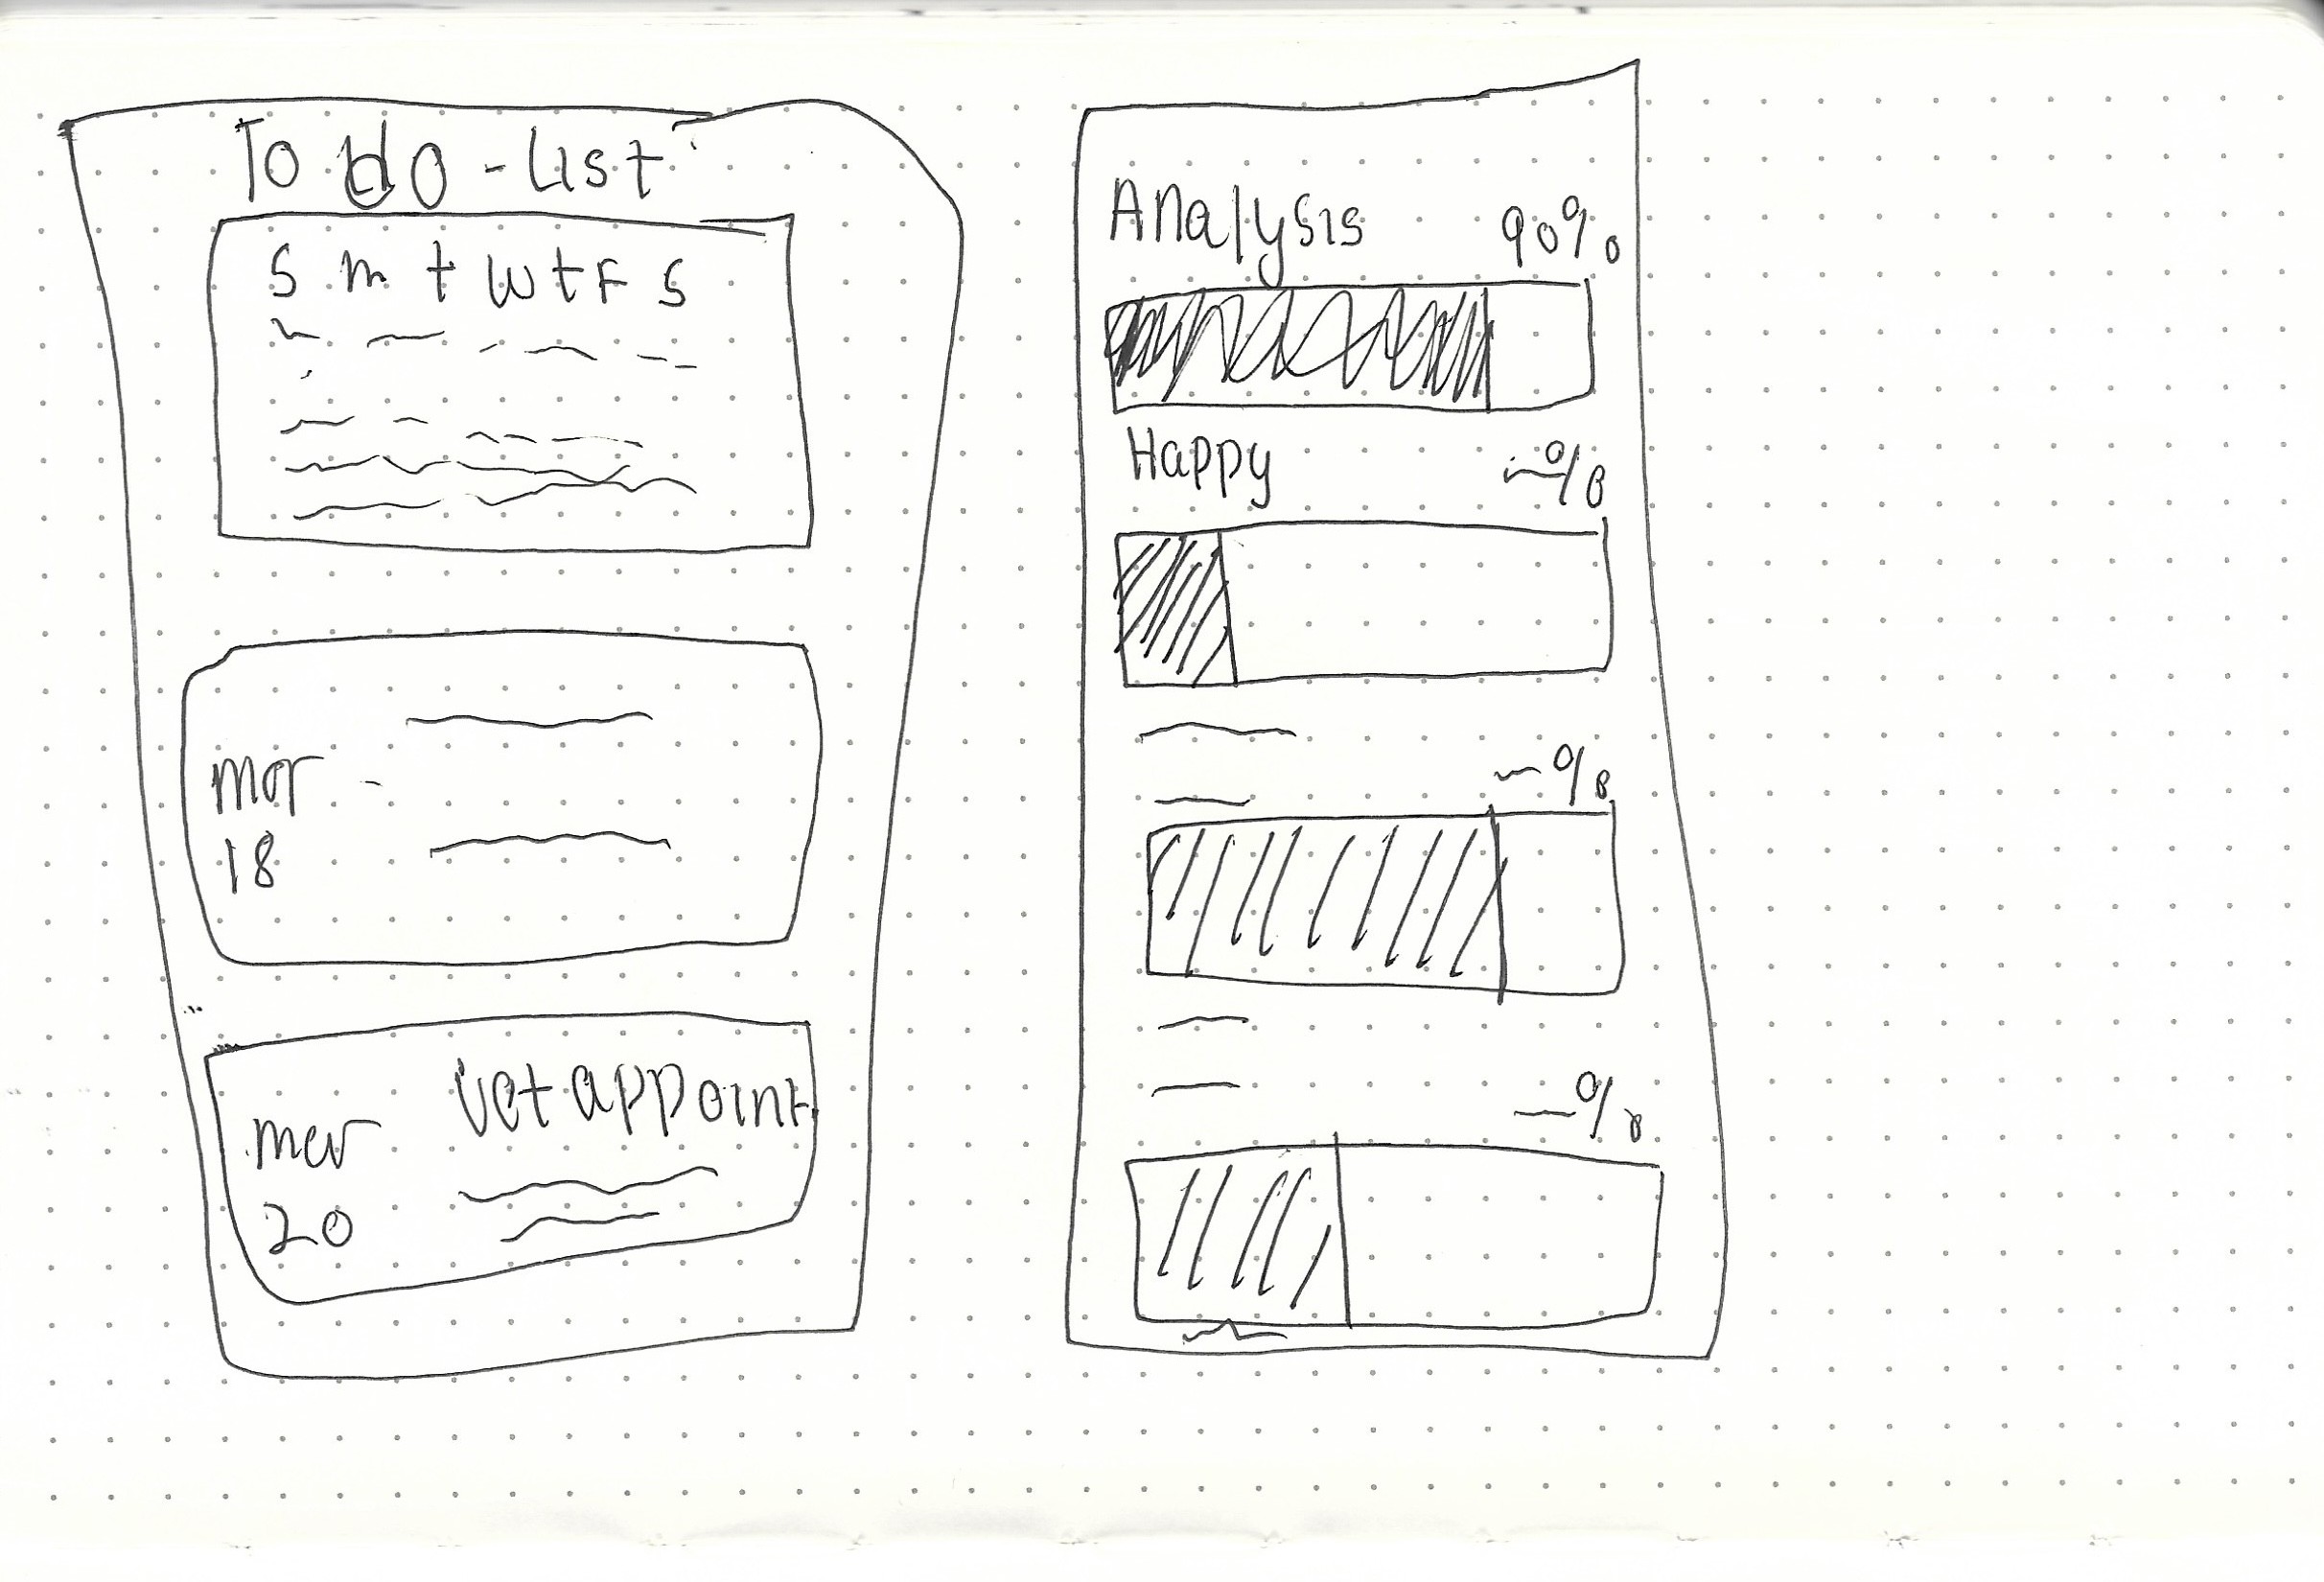 To do - List
S m t w t F s
mar
18
vet appoint
mar
20
Analysis 90%
Happy %
%
%